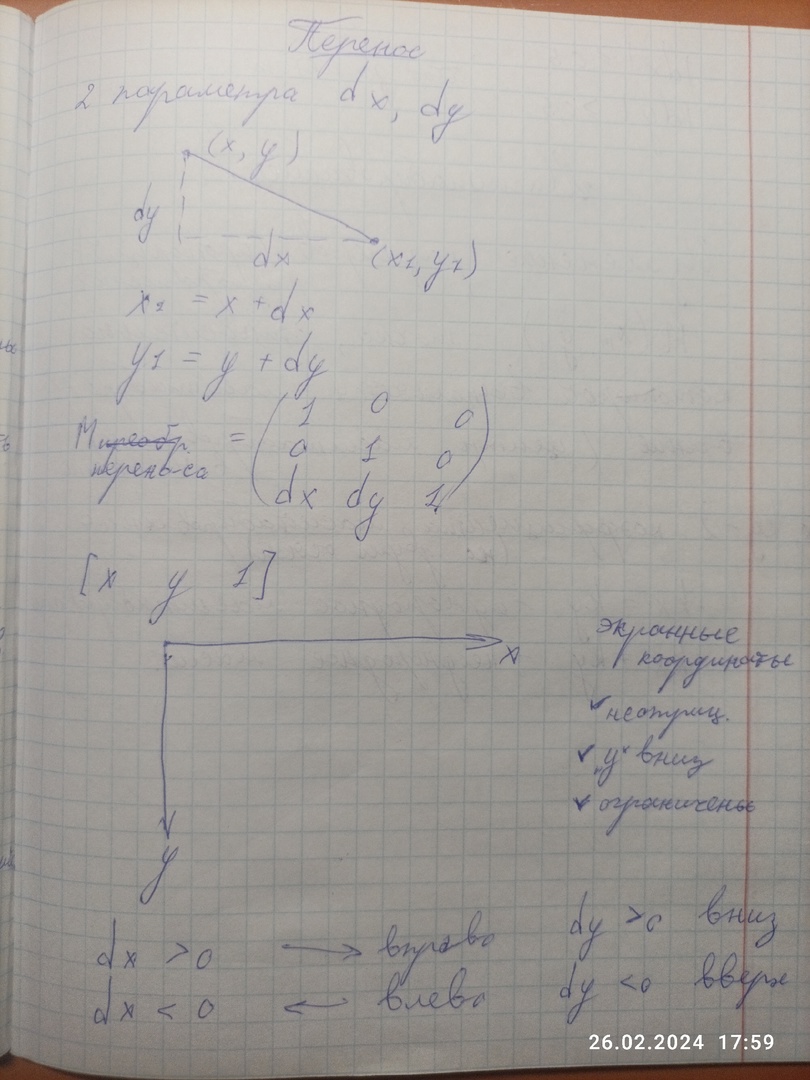 Перенос
2 параметра dx, dy
(x, y)
dy
dx
(x1, y1)
x1 = x + dx
y1 = y + dy
M переноса = ( 1 0 0
0 1 0
dx dy 1 )
[x y 1]
x
y
экранные
координаты
✓ неотриц.
✓ "y" вниз
✓ ограничены
dx > 0 → вправо
dx < 0 ← влево
dy > 0 вниз
dy < 0 вверх
26.02.2024 17:59